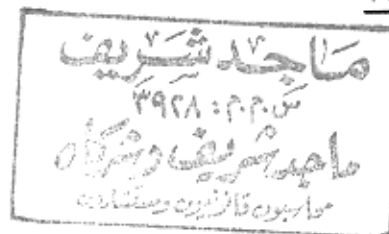 ماجد شريف
س.م.م: ٣٩٢٨
ماجد شريف وشركاه
محاسبون قانونيون ومستشارون